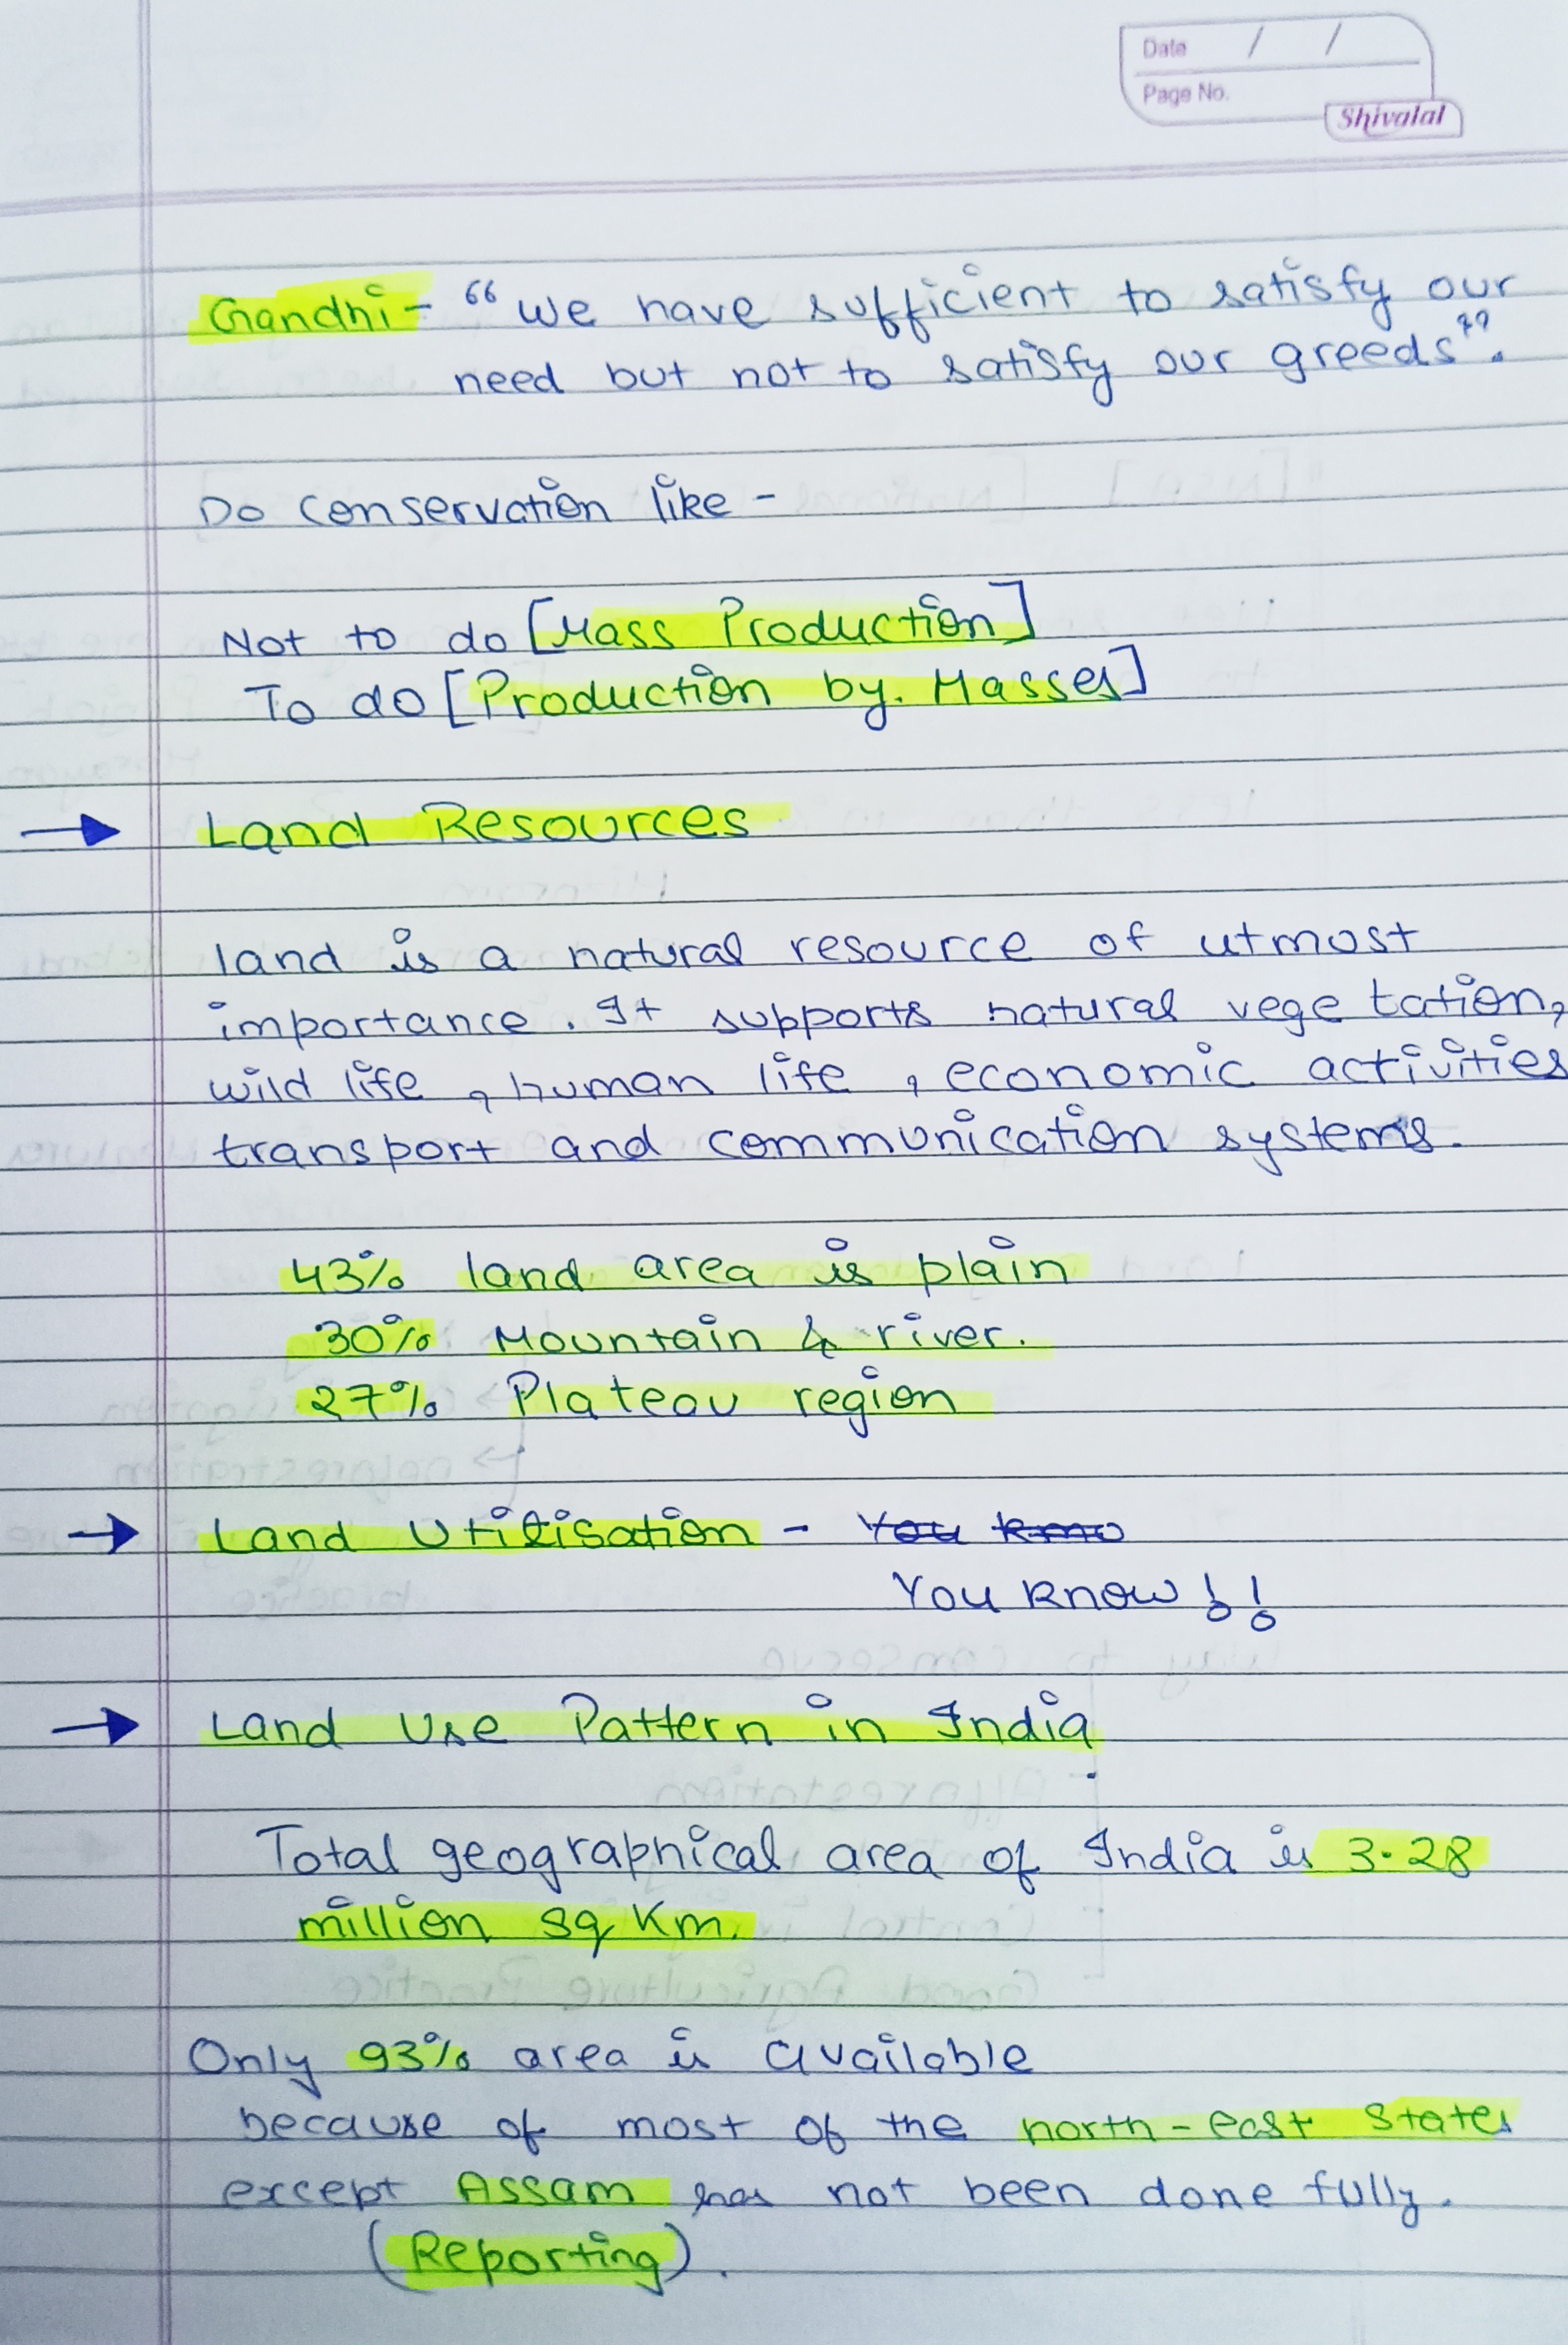 Date / /
Page No.
Shivalal
Gandhi - "We have sufficient to satisfy our
need but not to satisfy our greeds".
Do conservation like -
Not to do [Mass Production]
To do [Production by. Masses]
→ Land Resources
land is a natural resource of utmost
importance. It supports natural vegetation,
wild life, human life, economic activities
transport and communication systems.
43% land area is plain
30% Mountain & river.
27% Plateau region
→ Land Utilisation - You kno
You know!!
→ Land Use Pattern in India
Total geographical area of India is 3.28
million sq Km.
Only 93% area is available
because of most of the north-east States
except Assam has not been done fully.
(Reporting).